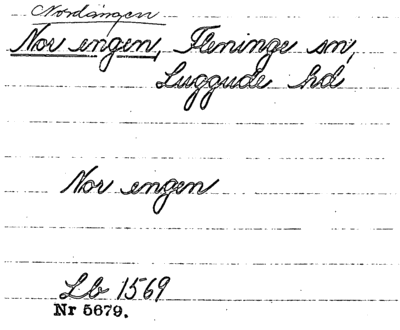 Nordängen
Nor engen, Fleninge sn,
Luggude hd
Nor engen
Lb 1569
Nr 5679.